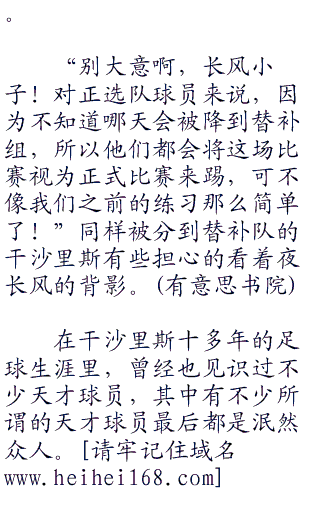 。
“别大意啊，长风小
子！对正选队球员来说，因
为不知道哪天会被降到替补
组，所以他们都会将这场比
赛视为正式比赛来踢，可不
像我们之前的练习那么简单
了！”同样被分到替补队的
干沙里斯有些担心的看着夜
长风的背影。(有意思书院)
在干沙里斯十多年的足
球生涯里，曾经也见识过不
少天才球员，其中有不少所
谓的天才球员最后都是泯然
众人。[请牢记住域名
www.heihei168.com]